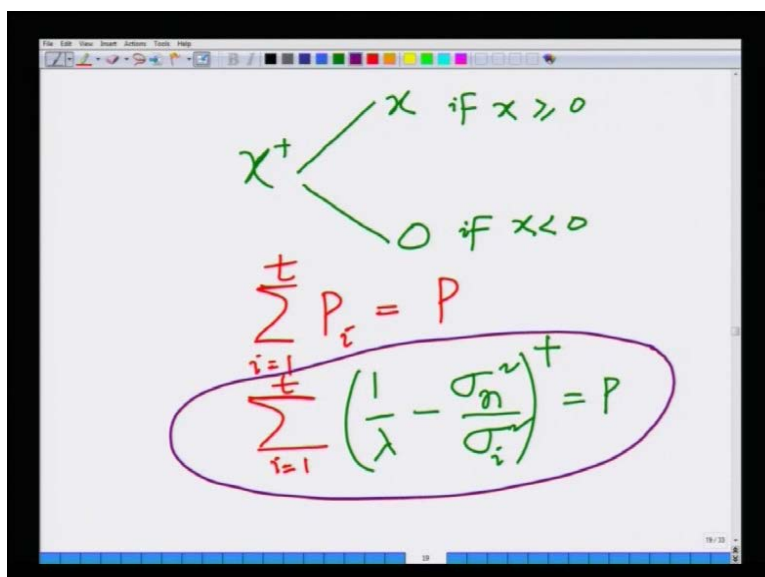 File Edit View Insert Actions Tools Help
B I
x⁺
x if x ≥ 0
0 if x < 0
∑_{i=1}^{t} P_i = P
∑_{i=1}^{t} (1/λ - σ_n²/σ_i²)⁺ = P
19
19 / 33